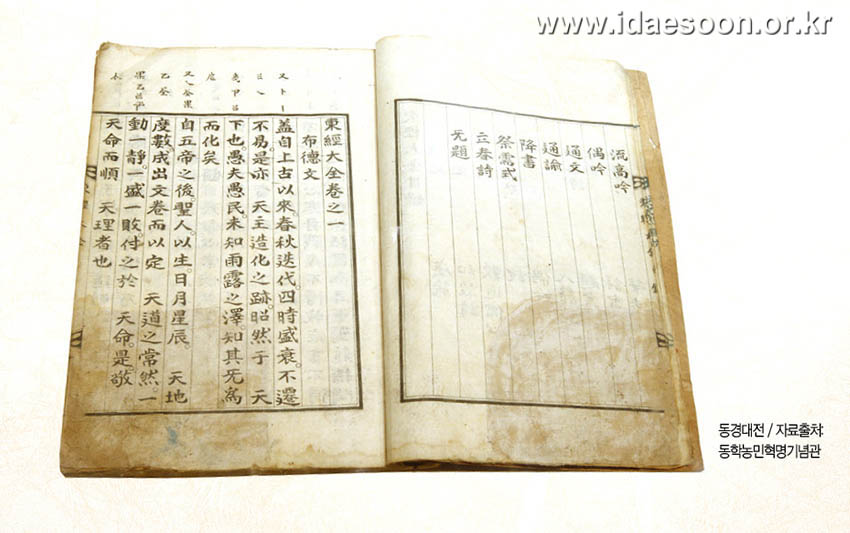 www.idaesoon.or.kr
流高吟
偶吟
通文
通諭
降書
祭需式
立春詩
无題
東經大全卷之一
布德文
盖自上古以來。春秋迭代。四時盛衰。不遷
不易。是亦 天主造化之跡。昭然于 天
下也。愚夫愚民。未知雨露之澤。知其无爲
而化矣
自五帝之後聖人。以生。日月星辰。 天地
度數成出文卷而以定 天道之常然一
動一靜。一盛一敗。付之於 天命。是。敬
天命而順 天理者也
동경대전 / 자료출처:
동학농민혁명기념관